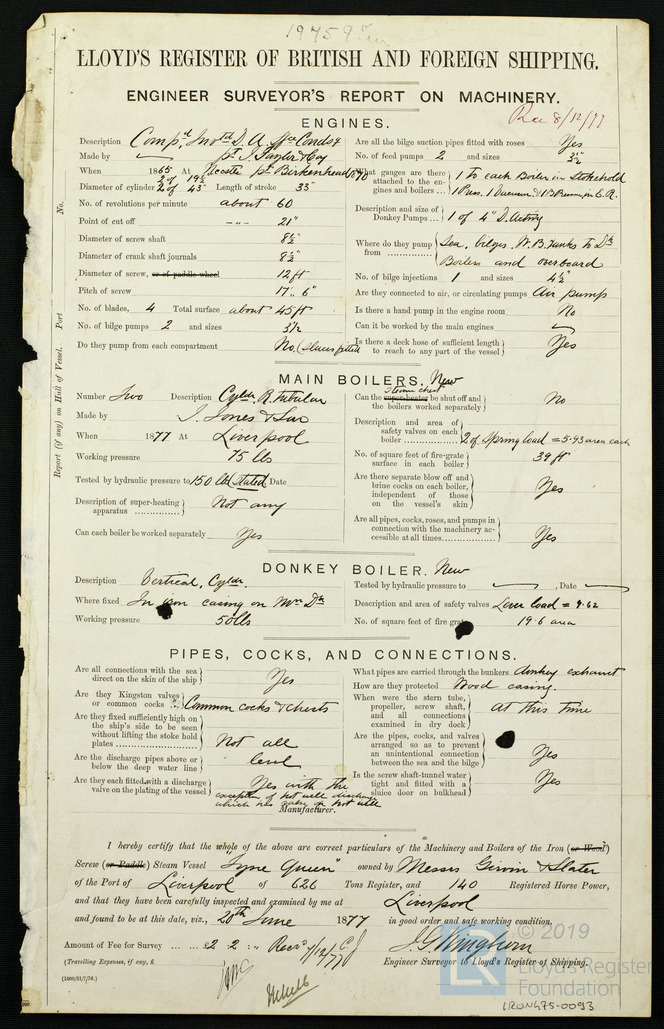 19759 Iron
LLOYD'S REGISTER OF BRITISH AND FOREIGN SHIPPING.
ENGINEER SURVEYOR'S REPORT ON MACHINERY.
Rec 8/12/77
ENGINES.
Description Comp.d Inv.td D. A.
Made by J. Taylor & Coy
When 1865 At Birkenhead 1870
Diameter of cylinder 2 of 43" Length of stroke 33"
No. of revolutions per minute about 60
Point of cut off -"- 21"
Diameter of screw shaft 8½"
Diameter of crank shaft journals 8½"
Diameter of screw, or of paddle wheel 12 ft
Pitch of screw 17' 6"
No. of blades, 4 Total surface about 45 ft
No. of bilge pumps 2 and sizes 3½
Do they pump from each compartment No, (Sluices fitted
Are all the bilge suction pipes fitted with roses Yes
No. of feed pumps 2 and sizes 3½"
What gauges are there attached to the engines and boilers ... 1 to each Boiler in Stokehold
1 Pres. 1 Vacuum & 1 B Pressure in E.R.
Description and size of Donkey Pumps ... 1 of 4" D. Acting
Where do they pump from Sea, bilges, W.B. Tanks to Dk
Boilers and overboard
No. of bilge injections 1 and sizes 4½"
Are they connected to air, or circulating pumps Air pump
Is there a hand pump in the engine room No
Can it be worked by the main engines
Is there a deck hose of sufficient length to reach to any part of the vessel Yes
No.
Port
Report (if any) on Hull of Vessel.
MAIN BOILERS. New
Number Two Description Cyldr. R. Tubular
Made by J. Jones & Son
When 1877 At Liverpool
Working pressure 75 lbs
Tested by hydraulic pressure to 150 lbs stated Date
Description of super-heating apparatus Not any
Can each boiler be worked separately Yes
Can the super-heater steam chest be shut off and the boilers worked separately No
Description and area of safety valves on each boiler 2 of Spring load = 5.93 area each
No. of square feet of fire-grate surface in each boiler 39 ft
Are there separate blow off and brine cocks on each boiler, independent of those on the vessel's skin Yes
Are all pipes, cocks, roses, and pumps in connection with the machinery accessible at all times Yes
DONKEY BOILER. New
Description Vertical, Cyldr.
Where fixed In iron casing on Mn Dk
Working pressure 50 lbs
Tested by hydraulic pressure to , Date
Description and area of safety valves Lever load = 9.62
No. of square feet of fire grate 19.6 area
PIPES, COCKS, AND CONNECTIONS.
Are all connections with the sea direct on the skin of the ship Yes
Are they Kingston valves or common cocks Common cocks & chests
Are they fixed sufficiently high on the ship's side to be seen without lifting the stoke hold plates Not all
Are the discharge pipes above or below the deep water line level
Are they each fitted with a discharge valve on the plating of the vessel Yes with the
exception of hot well discharge
which has valve on hot well
Manufacturer.
What pipes are carried through the bunkers donkey exhaust
How are they protected Wood casing.
When were the stern tube, propeller, screw shaft, and all connections examined in dry dock At this time
Are the pipes, cocks, and valves arranged so as to prevent an unintentional connection between the sea and the bilge Yes
Is the screw shaft-tunnel water tight and fitted with a sluice door on bulkhead Yes
I hereby certify that the whole of the above are correct particulars of the Machinery and Boilers of the Iron (or Wood)
Screw (or Paddle) Steam Vessel "Tyne Queen" owned by Messrs Girvin & Slater
of the Port of Liverpool of 626 Tons Register, and 140 Registered Horse Power,
and that they have been carefully inspected and examined by me at Liverpool
and found to be at this date, viz., 20th June 1877 in good order and safe working condition.
Amount of Fee for Survey ... £2 2 : " Recd 7/12/77
(Travelling Expenses, if any, £
(1000/31/7/76.)
Engineer Surveyor to Lloyd's Register of Shipping.
© 2019
LR
Lloyd's Register
Foundation
IRON475-0093